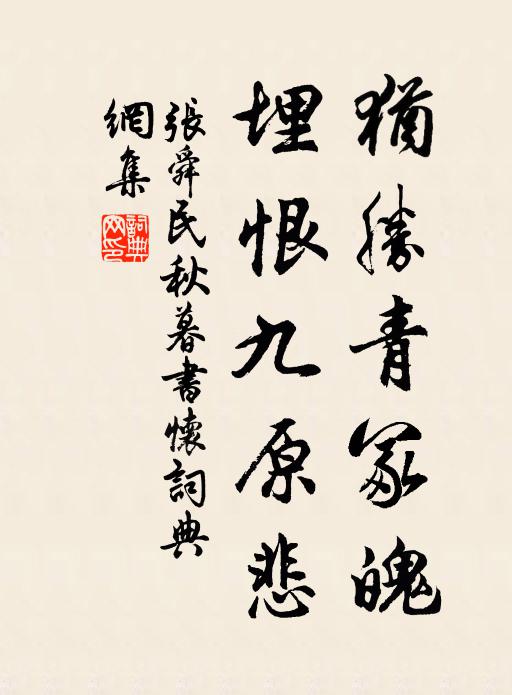 猶勝青冢魄
埋恨九原悲
張舜民秋暮書懷詞典
網集
詞典網印